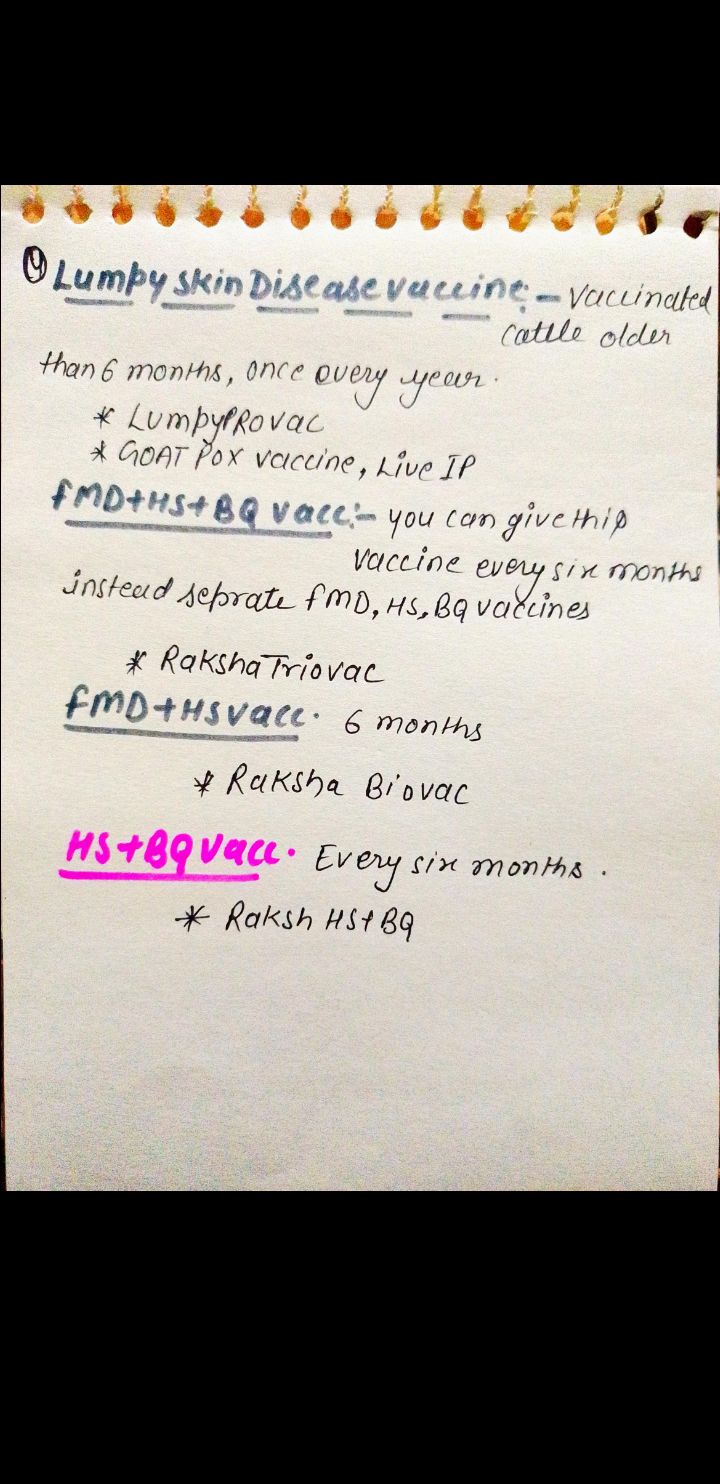 ④ Lumpy skin Disease vaccine:- vaccinated
cattle older
than 6 months, once every year.
* LumpyPRovac
* GOAT Pox vaccine, Live IP
FMD+HS+BQ vacc:- you can give this
vaccine every six months
instead seprate FMD, HS, BQ vaccines
* Raksha Triovac
FMD+HS vacc. 6 months
* Raksha Biovac
HS+BQ vacc. Every six months.
* Raksh HS+BQ